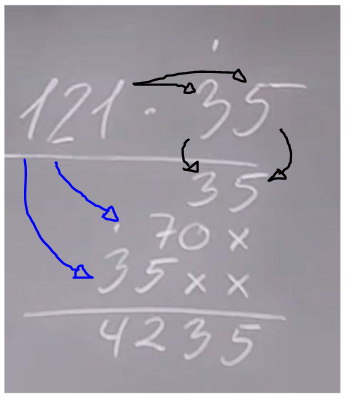 121 · 35
35
70 x
35 x x
4235